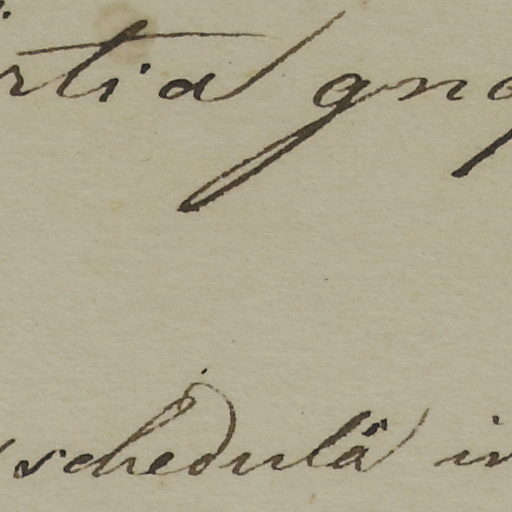 rtia gno
schedulâ in